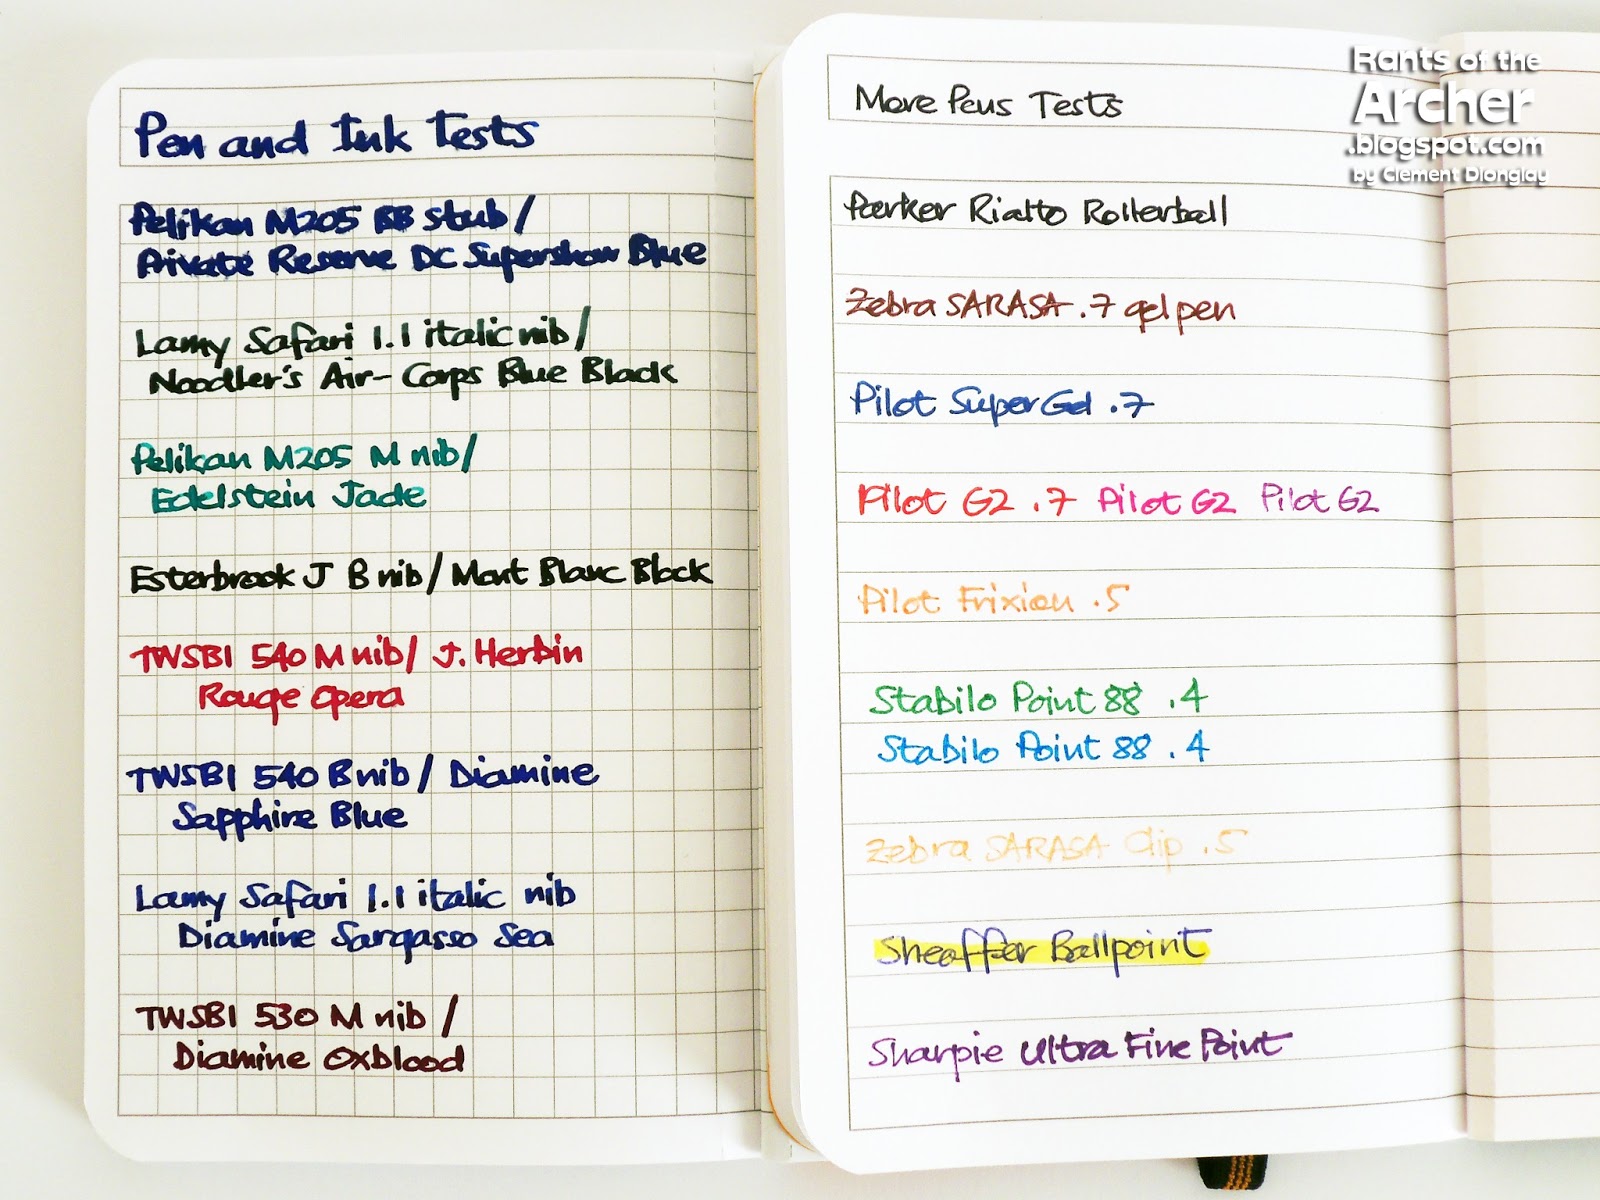 Pen and Ink Tests
Pelikan M205 BB stub /
Private Reserve DC Supershow Blue
Lamy Safari 1.1 italic nib /
Noodler's Air-Corps Blue Black
Pelikan M205 M nib /
Edelstein Jade
Esterbrook J B nib / Mont Blanc Black
TWSBI 540 M nib / J. Herbin
Rouge Opera
TWSBI 540 B nib / Diamine
Sapphire Blue
Lamy Safari 1.1 italic nib
Diamine Sargasso Sea
TWSBI 530 M nib /
Diamine Oxblood
More Pens Tests
Parker Rialto Rollerball
Zebra SARASA .7 gel pen
Pilot Super Gel .7
Pilot G2 .7 Pilot G2 Pilot G2
Pilot Frixion .5
Stabilo Point 88 .4
Stabilo Point 88 .4
Zebra SARASA Clip .5
Sheaffer Ballpoint
Sharpie Ultra Fine Point
Rants of the
Archer
.blogspot.com
by Clement Dionglay